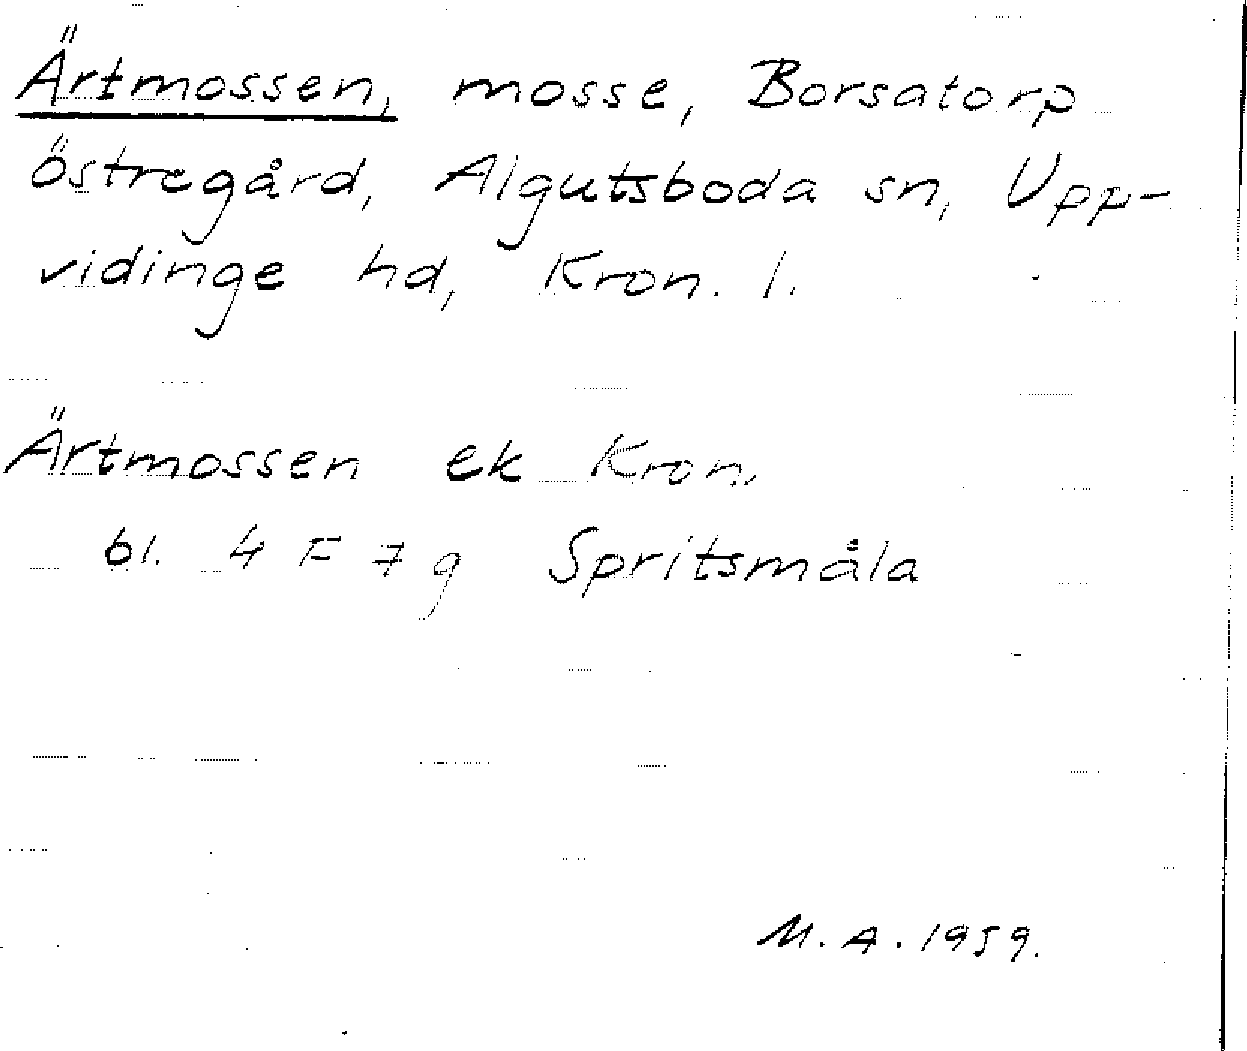 Ärtmossen, mosse, Borsatorp
östregård, Algutsboda sn, Upp-
vidinge hd, Kron. l.
Ärtmossen ek Kron.
bl. 4 F 7 g Spritsmåla
M. A. 1959.